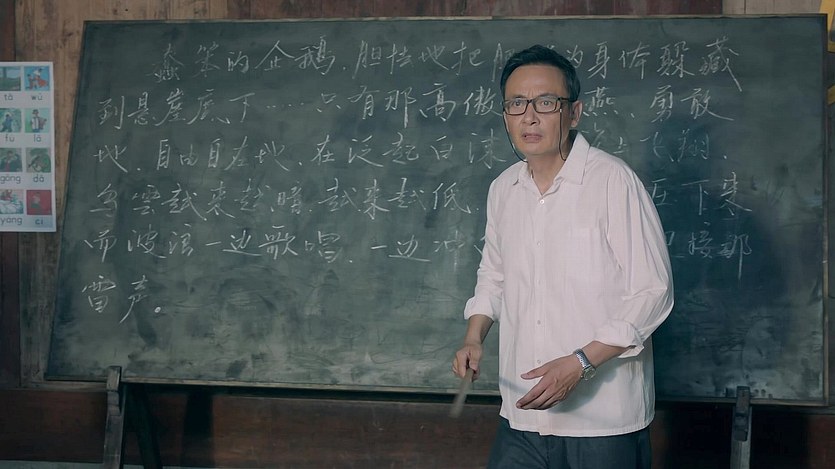 蠢笨的企鹅,胆怯地把肥 身体躲藏
到悬崖底下……只有那高傲 燕,勇敢
地,自由自在地,在泛起白沫 上飞翔,
乌云越来越暗,越来越低, 压下来
而波浪一边歌唱,一边冲 接那
雷声。